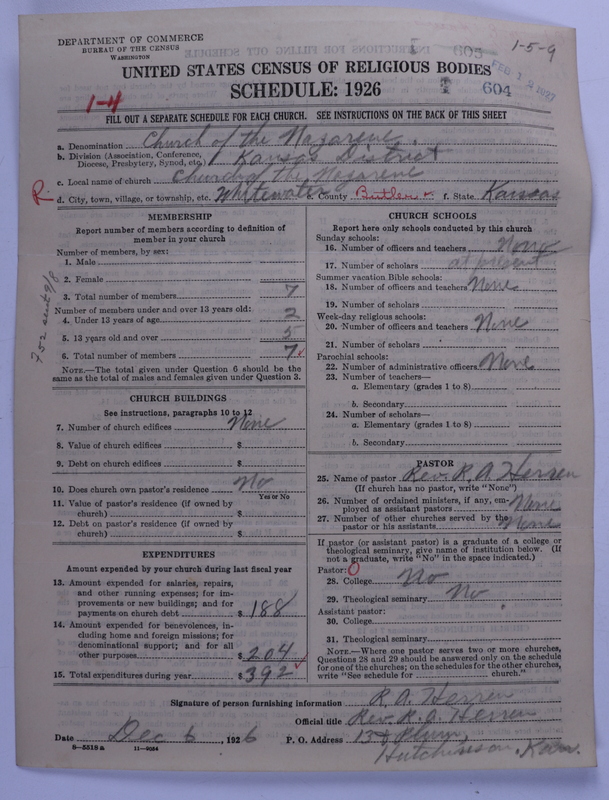 DEPARTMENT OF COMMERCE
BUREAU OF THE CENSUS
WASHINGTON
605
1-5-9
FEB 12 1927
UNITED STATES CENSUS OF RELIGIOUS BODIES
SCHEDULE: 1926
604
1-4
FILL OUT A SEPARATE SCHEDULE FOR EACH CHURCH. SEE INSTRUCTIONS ON THE BACK OF THIS SHEET
a. Denomination Church of the Nazarene
b. Division (Association, Conference, Diocese, Presbytery, Synod, etc.) Kansas District
c. Local name of church Church of the Nazarene
R d. City, town, village, or township, etc. Whitewater e. County Butler f. State Kansas
MEMBERSHIP
Report number of members according to definition of member in your church
Number of members, by sex:
1. Male
2. Female
3. Total number of members 7
Number of members under and over 13 years old:
4. Under 13 years of age 2
5. 13 years old and over 5
6. Total number of members 7
NOTE.—The total given under Question 6 should be the same as the total of males and females given under Question 3.
CHURCH BUILDINGS
See instructions, paragraphs 10 to 12
7. Number of church edifices None
8. Value of church edifices $
9. Debt on church edifices $
10. Does church own pastor's residence No
Yes or No
11. Value of pastor's residence (if owned by church) $
12. Debt on pastor's residence (if owned by church) $
EXPENDITURES
Amount expended by your church during last fiscal year
13. Amount expended for salaries, repairs, and other running expenses; for improvements or new buildings; and for payments on church debt $ 188
14. Amount expended for benevolences, including home and foreign missions; for denominational support; and for all other purposes $ 204
15. Total expenditures during year $ 392
CHURCH SCHOOLS
Report here only schools conducted by this church
Sunday schools:
16. Number of officers and teachers None
17. Number of scholars at present
Summer vacation Bible schools:
18. Number of officers and teachers None
19. Number of scholars
Week-day religious schools:
20. Number of officers and teachers None
21. Number of scholars
Parochial schools:
22. Number of administrative officers None
23. Number of teachers—
a. Elementary (grades 1 to 8)
b. Secondary
24. Number of scholars—
a. Elementary (grades 1 to 8)
b. Secondary
PASTOR
25. Name of pastor Rev. R. A. Herren
(If church has no pastor, write "None")
26. Number of ordained ministers, if any, employed as assistant pastors None
27. Number of other churches served by the pastor or his assistants None
If pastor (or assistant pastor) is a graduate of a college or theological seminary, give name of institution below. (If not a graduate, write "No" in the space indicated.)
Pastor: O
28. College No
29. Theological seminary No
Assistant pastor:
30. College
31. Theological seminary
NOTE.—Where one pastor serves two or more churches, Questions 28 and 29 should be answered only on the schedule for one of the churches; on the schedules for the other churches, write "See schedule for church."
Signature of person furnishing information R. A. Herren
Official title Rev. R. A. Herren
Date Dec 6, 1926 P. O. Address Plum,
Hutchinson, Kan.
8-5518 a 11-9054